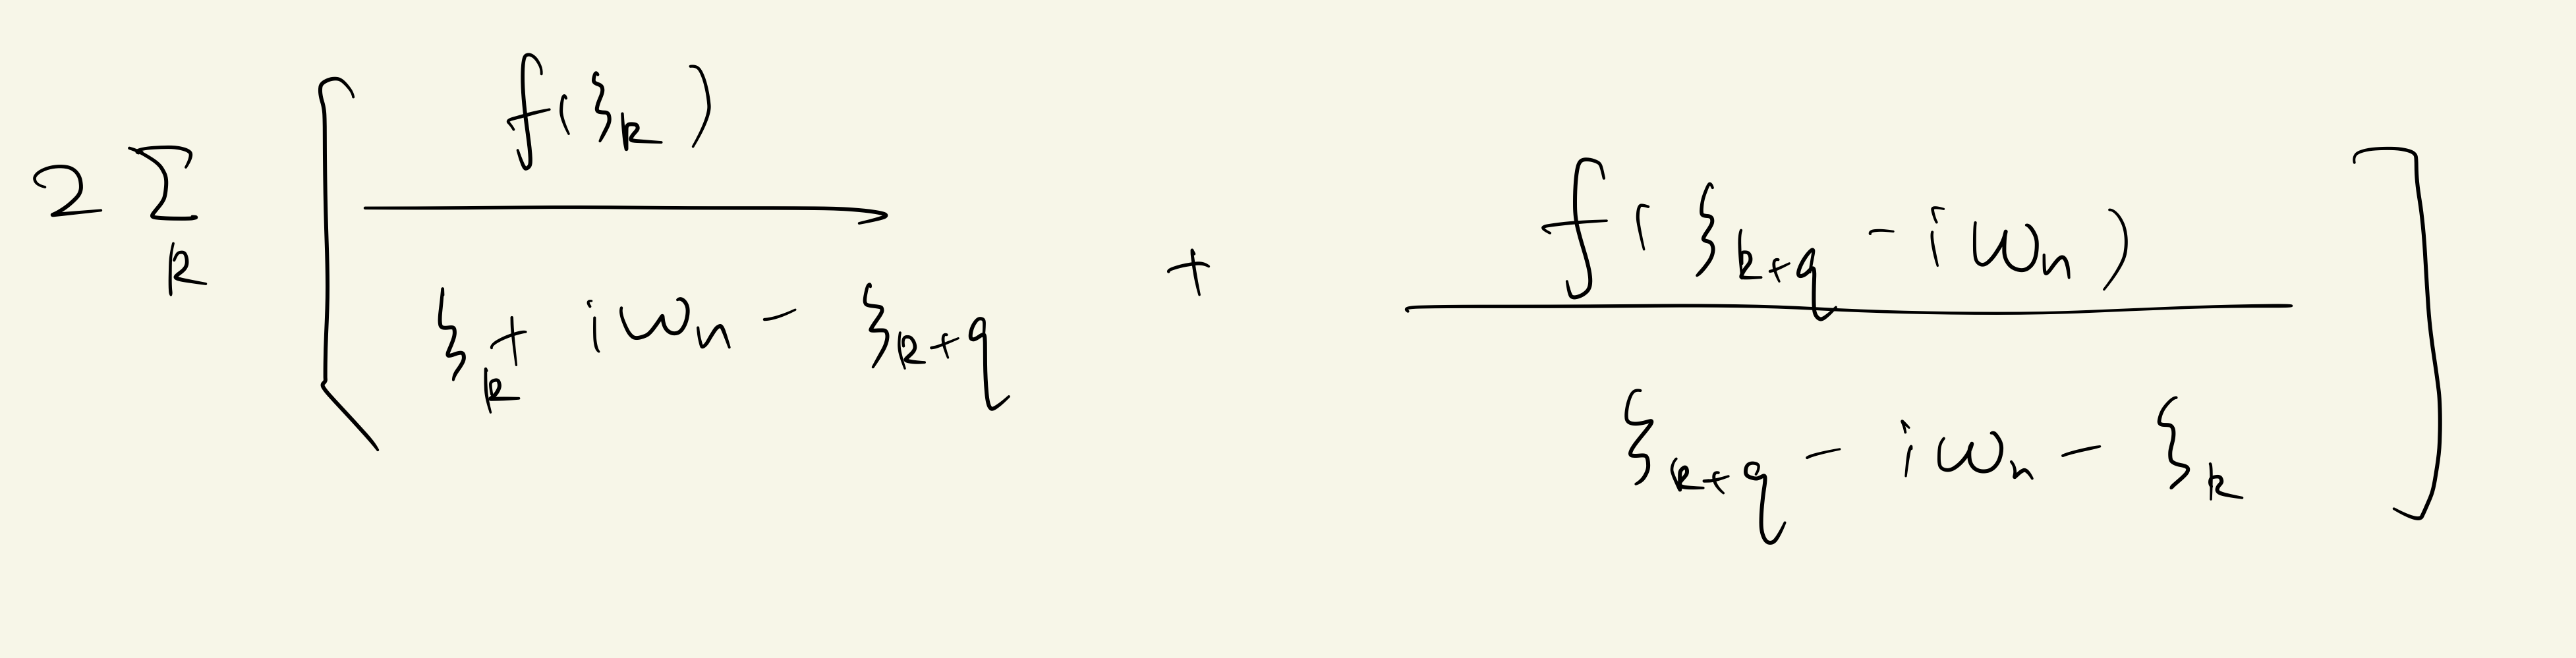 2 \sum_{k} \left[ \frac{f(\xi_k)}{\xi_k + i\omega_n - \xi_{k+q}} + \frac{f(\xi_{k+q} - i\omega_n)}{\xi_{k+q} - i\omega_n - \xi_k} \right]